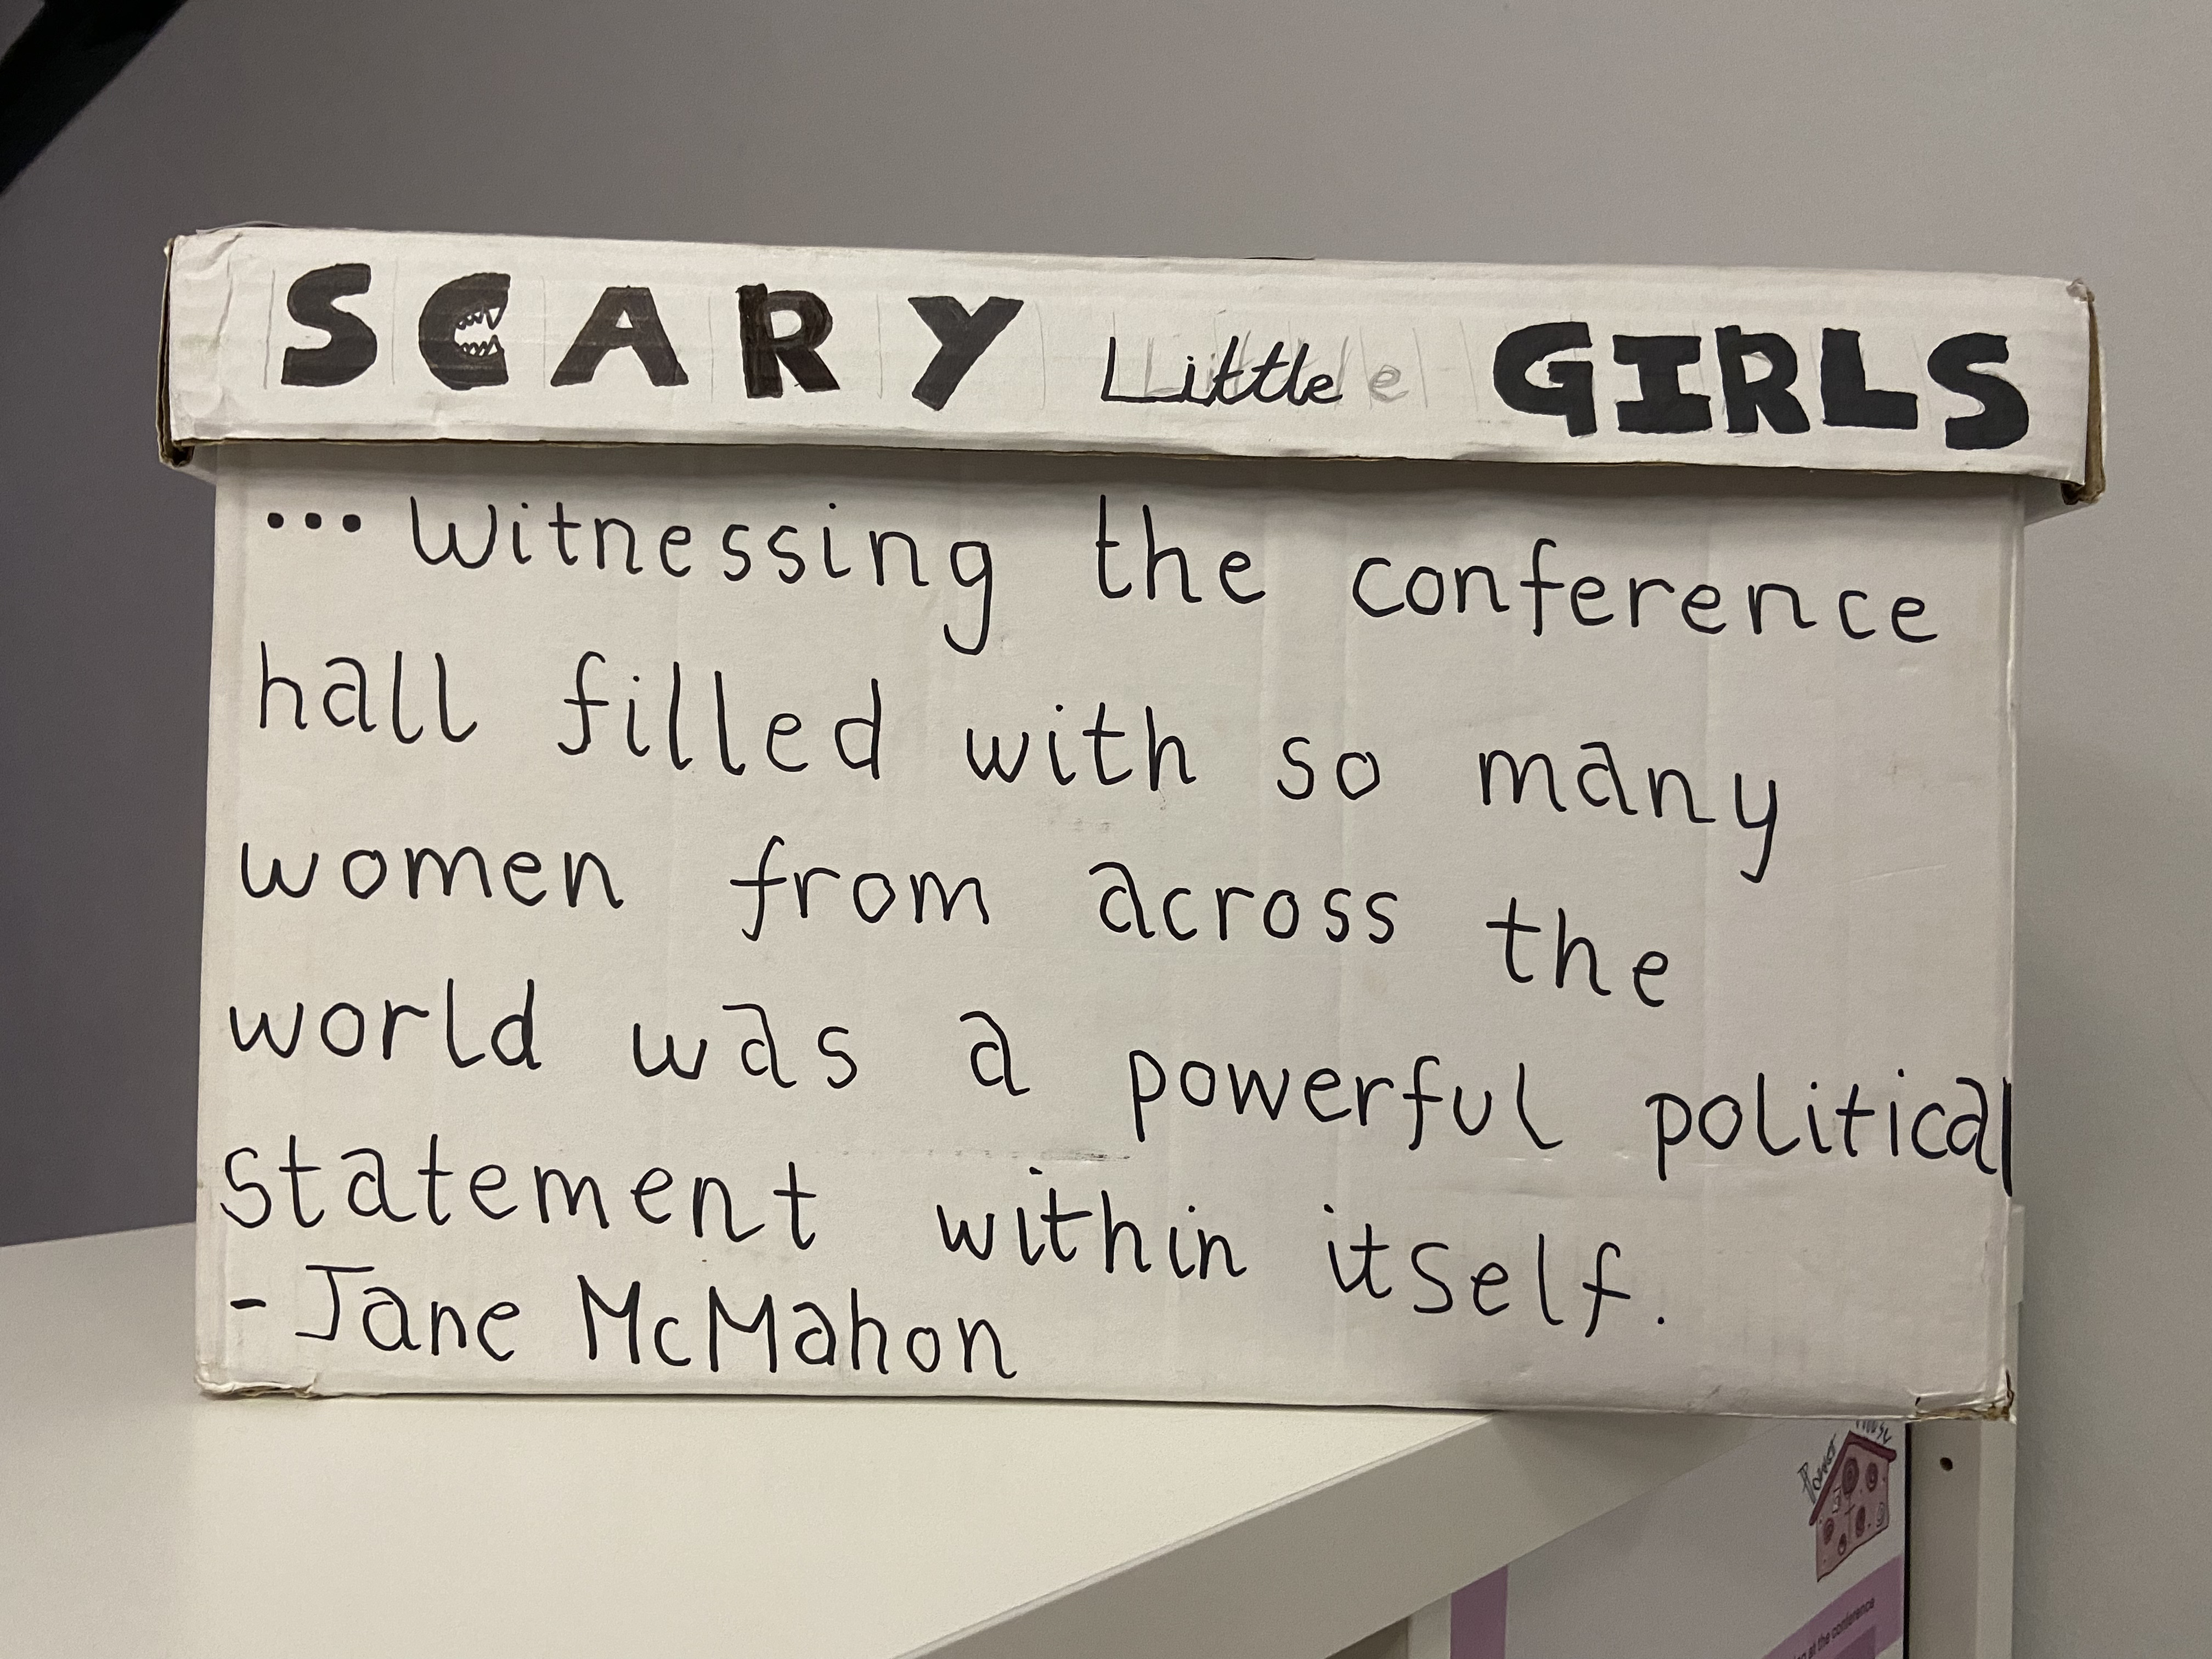 SCARY Little GIRLS
... Witnessing the conference
hall filled with so many
women from across the
world was a powerful political
statement within itself.
- Jane McMahon
at the conference